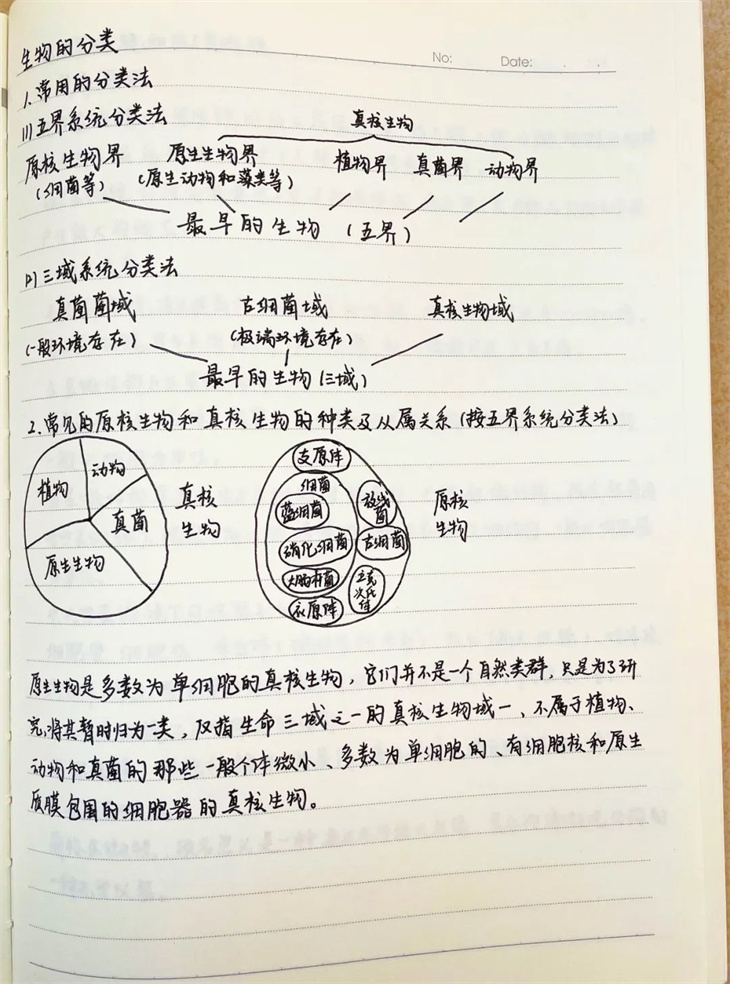 No: Date:
生物的分类
1.常用的分类法
(1)五界系统分类法
真核生物
原核生物界 原生生物界 植物界 真菌界 动物界
(细菌等) (原生动物和藻类等)
最早的生物 (五界)
(2)三域系统分类法
真菌菌域 古细菌域 真核生物域
(一般环境存在) (极端环境存在)
最早的生物(三域)
2.常见的原核生物和真核生物的种类及从属关系(按五界系统分类法)
植物 动物 真菌 原生生物
真核
生物
支原体
细菌
蓝细菌
硝化细菌
大肠杆菌
衣原体
放线
菌
古细菌
立克
次氏
体
原核
生物
原生生物是多数为单细胞的真核生物,它们并不是一个自然类群,只是为了研
究,将其暂时归为一类,仅指生命三域之一的真核生物域一、不属于植物、
动物和真菌的那些一般个体微小、多数为单细胞的、有细胞核和原生
质膜包围的细胞器的真核生物。